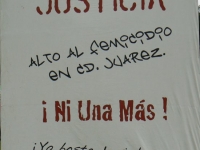 JUSTICIA
ALTO AL fEMiCiDiO
EN CD. JUAREZ.
¡ Ni Una Más !
¡Ya basta